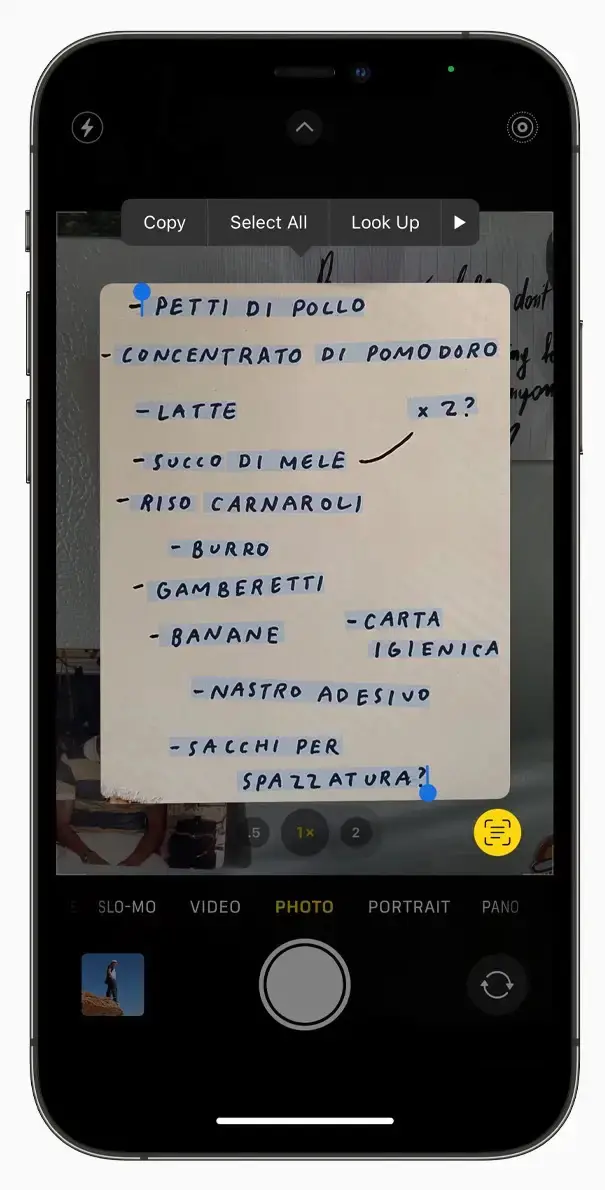 Copy Select All Look Up
- PETTI DI POLLO
- CONCENTRATO DI POMODORO
- LATTE x 2?
- SUCCO DI MELE
- RISO CARNAROLI
- BURRO
- GAMBERETTI
- BANANE
- CARTA
IGIENICA
- NASTRO ADESIVO
- SACCHI PER
SPAZZATURA?
.5 1× 2
SLO-MO VIDEO PHOTO PORTRAIT PANO